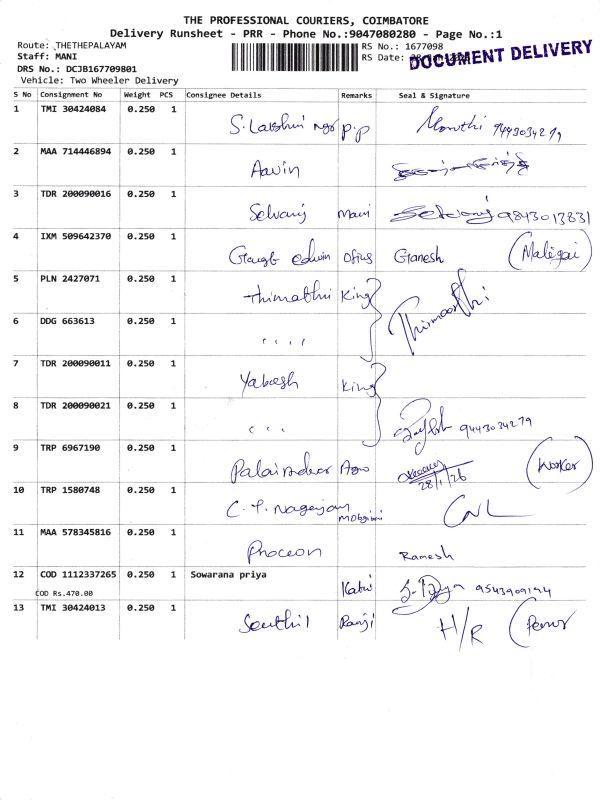 THE PROFESSIONAL COURIERS, COIMBATORE
Delivery Runsheet - PRR - Phone No.:9047080280 - Page No.:1
Route: THETHEPALAYAM
RS No.: 1677098
Staff: MANI
RS Date:
DOCUMENT DELIVERY
DRS No.: DCJB167709801
Vehicle: Two Wheeler Delivery
S No Consignment No Weight PCS Consignee Details Remarks Seal & Signature
1 TMI 30424084 0.250 1
S. Lakshmi P.P 9443034279
2 MAA 714446894 0.250 1
Aavin
3 TDR 200090016 0.250 1
Selvaraj Mani Selvaraj 9843013831
4 IXM 509642370 0.250 1
edwin Ganesh (Maligai)
5 PLN 2427071 0.250 1
King
6 DDG 663613 0.250 1
" "
7 TDR 200090011 0.250 1
King
8 TDR 200090021 0.250 1
" " 9443034279
9 TRP 6967190 0.250 1
Agro 28/1/26 (Worker)
10 TRP 1580748 0.250 1
C. P. Nagarajan
11 MAA 578345816 0.250 1
Proceon Ramesh
12 COD 1112337265 0.250 1 Sowarana priya
COD Rs.470.00
9543909194
13 TMI 30424013 0.250 1
Senthil H/R